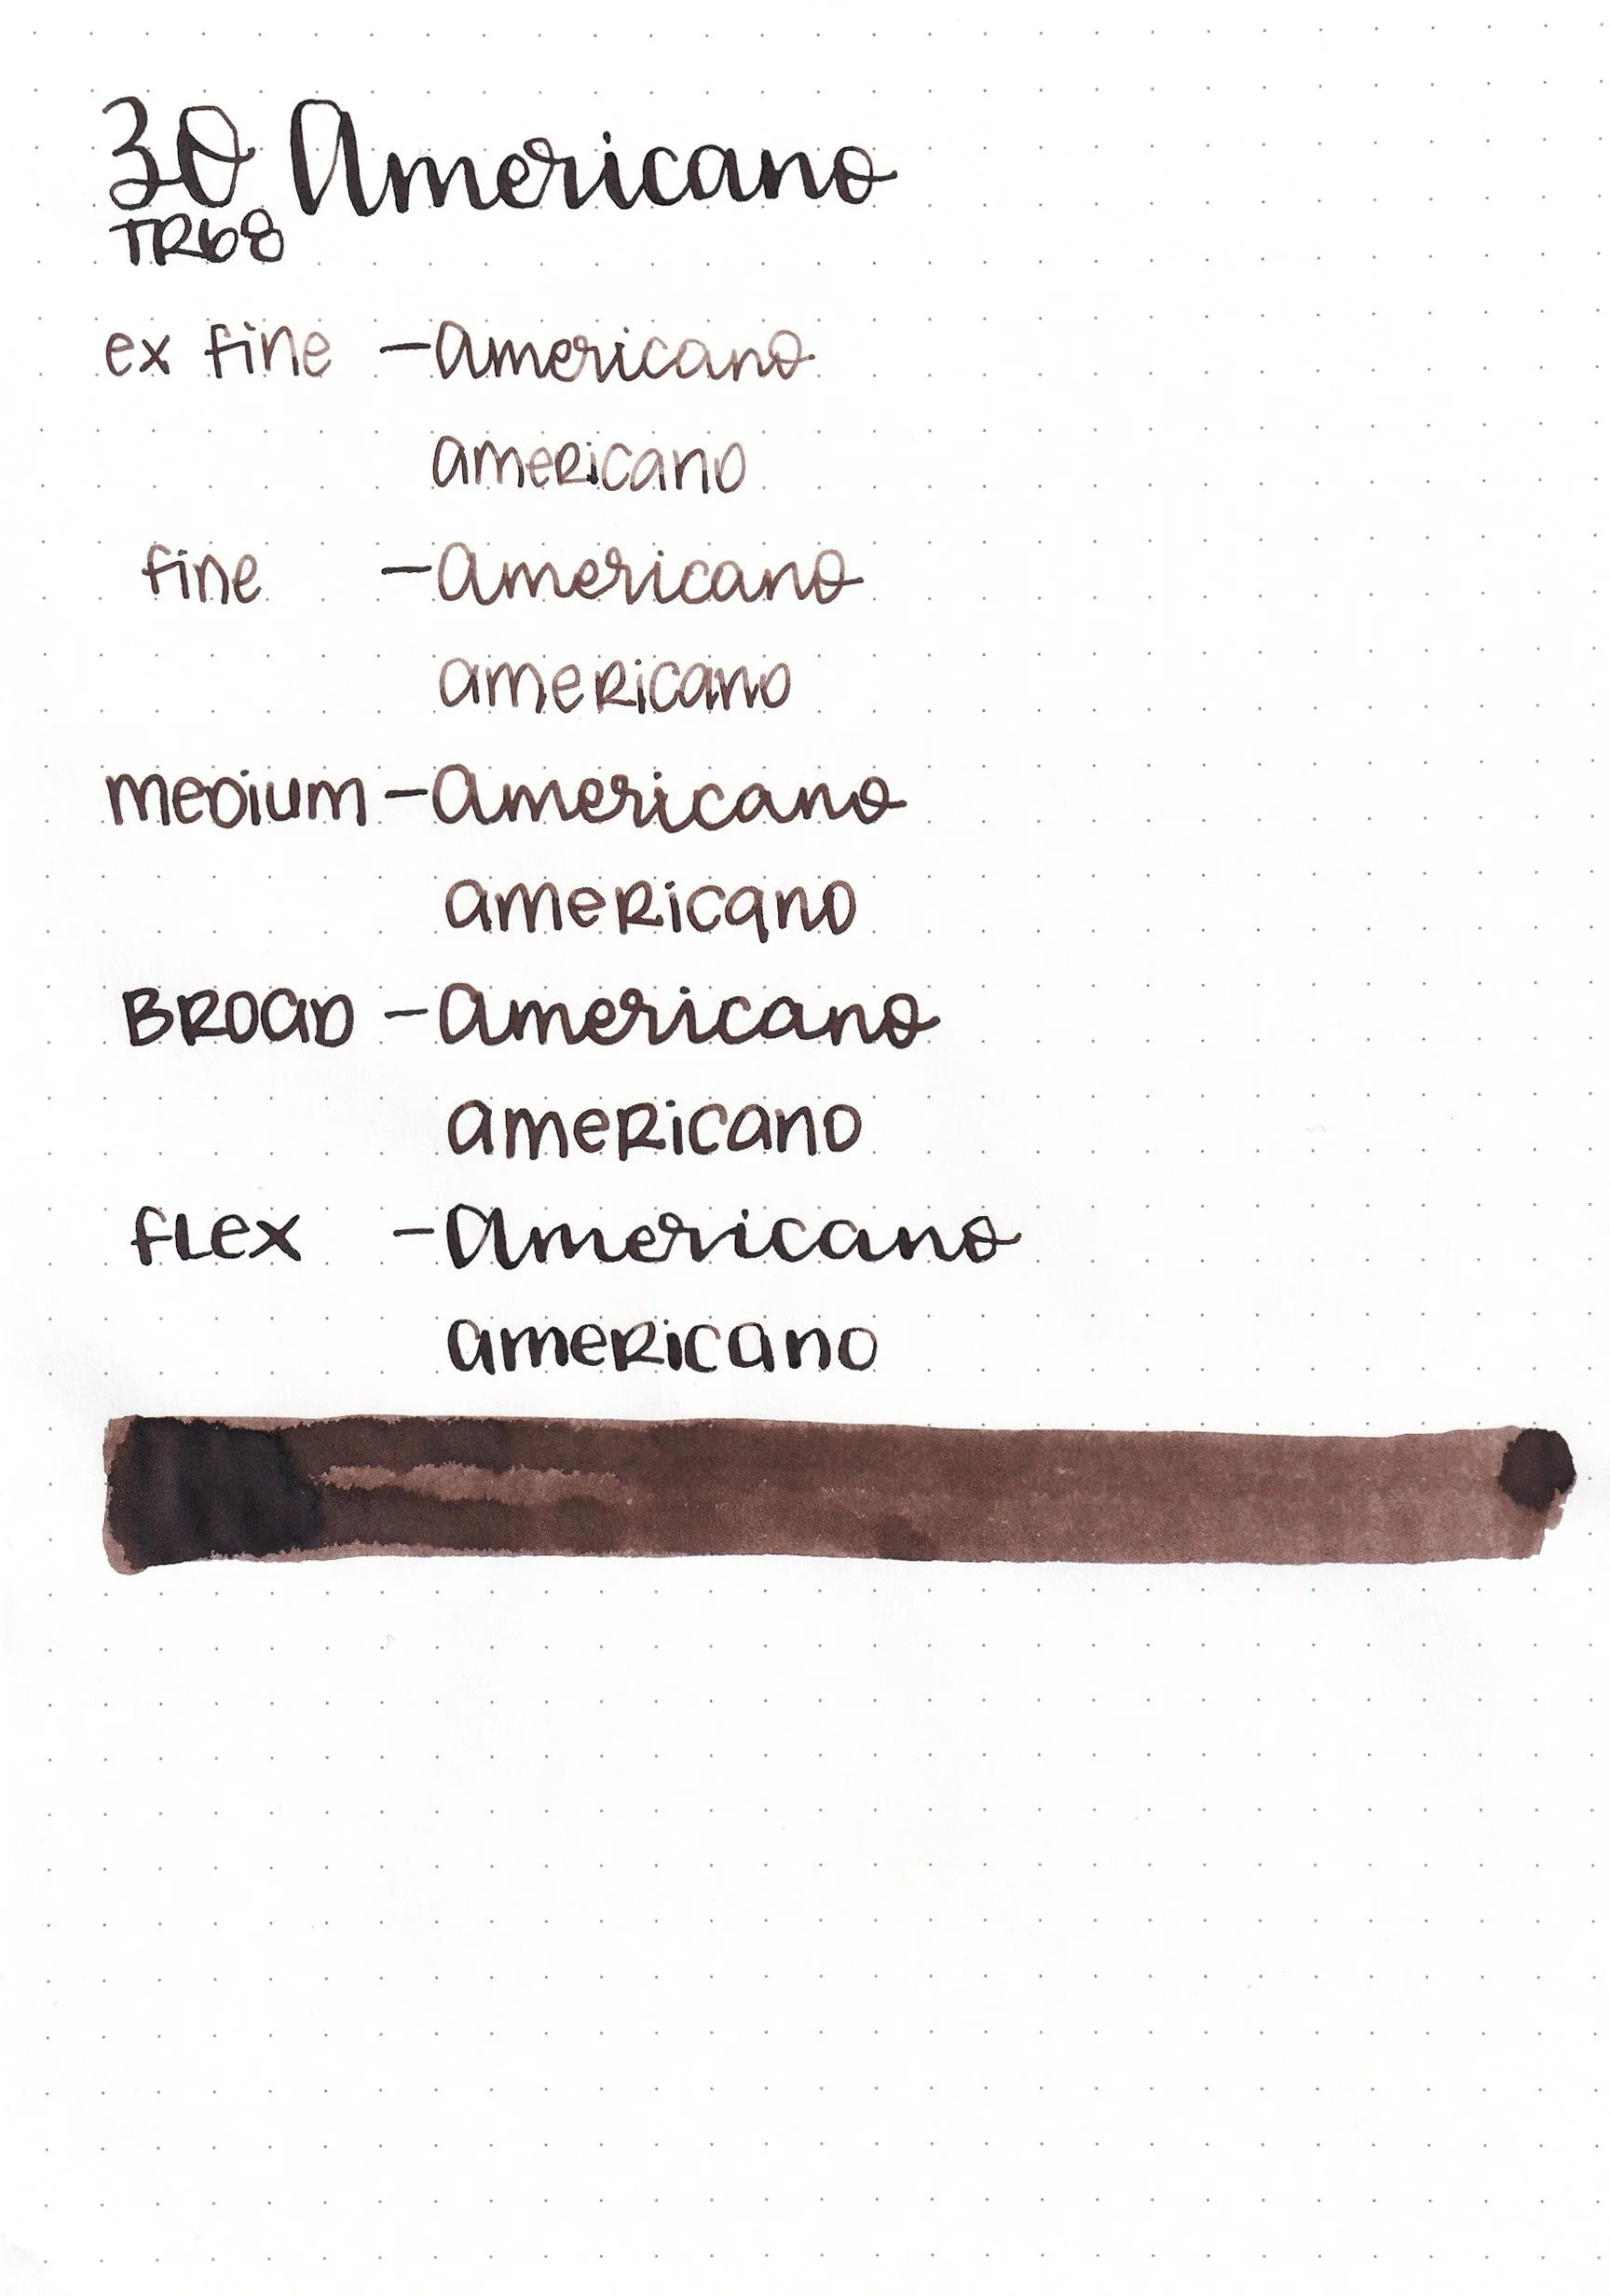 30 Americano
TR68
ex fine - americano
americano
fine - americano
americano
medium - americano
americano
BROAD - americano
americano
flex - americano
americano